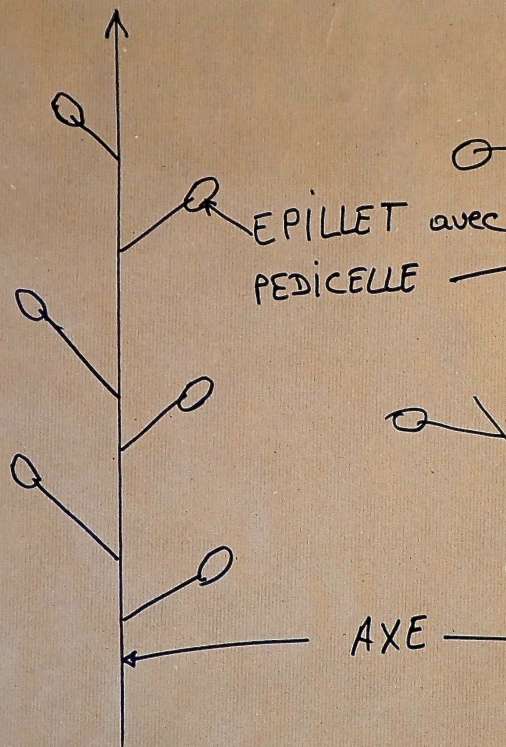 EPILLET avec
PEDICELLE
AXE